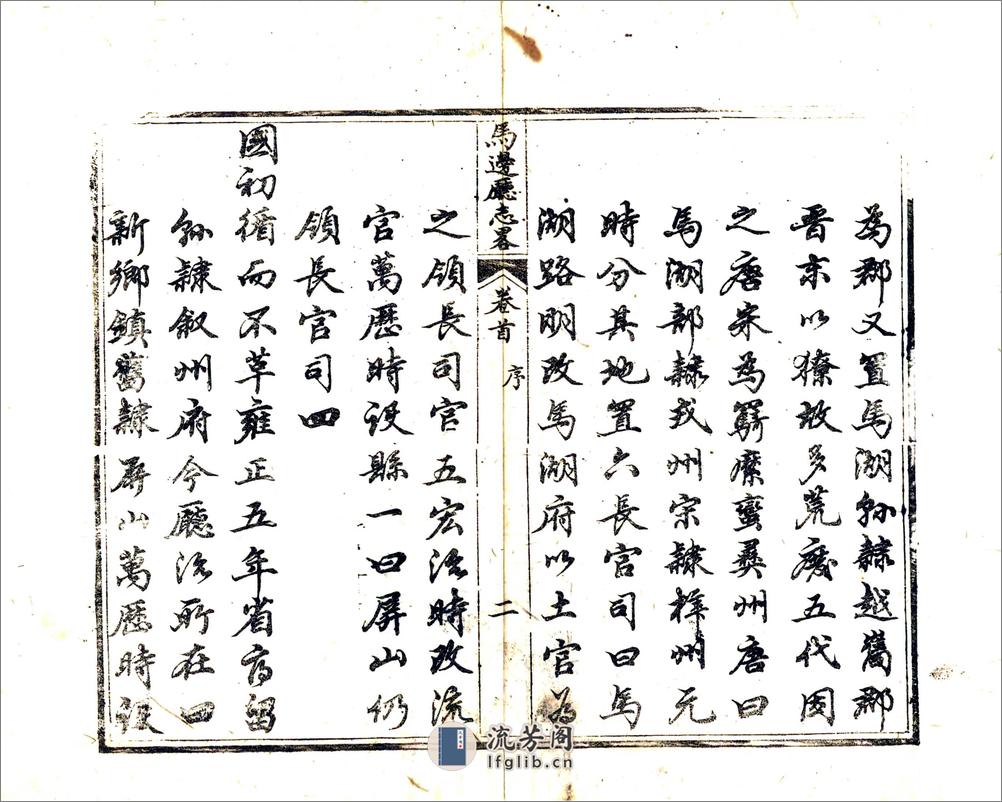 為郡又置馬湖縣隸越嶲郡
晋末以獠故多荒廢五代因
之唐宋為羈縻蠻彝州唐曰
馬湖部隸戎州宋隸樣州元
時分其地置六長官司曰馬
湖路明改馬湖府以土官為
馬邊廳志畧
卷首
序
二
之領長司官五宏治時改流
官萬歷時設縣一曰屏山仍
領長官司四
國初循而不革雍正五年省府留
縣隸叙州府今廳治所在曰
新鄉鎮舊隸屏山萬歷時設
流芳阁
lfglib.cn